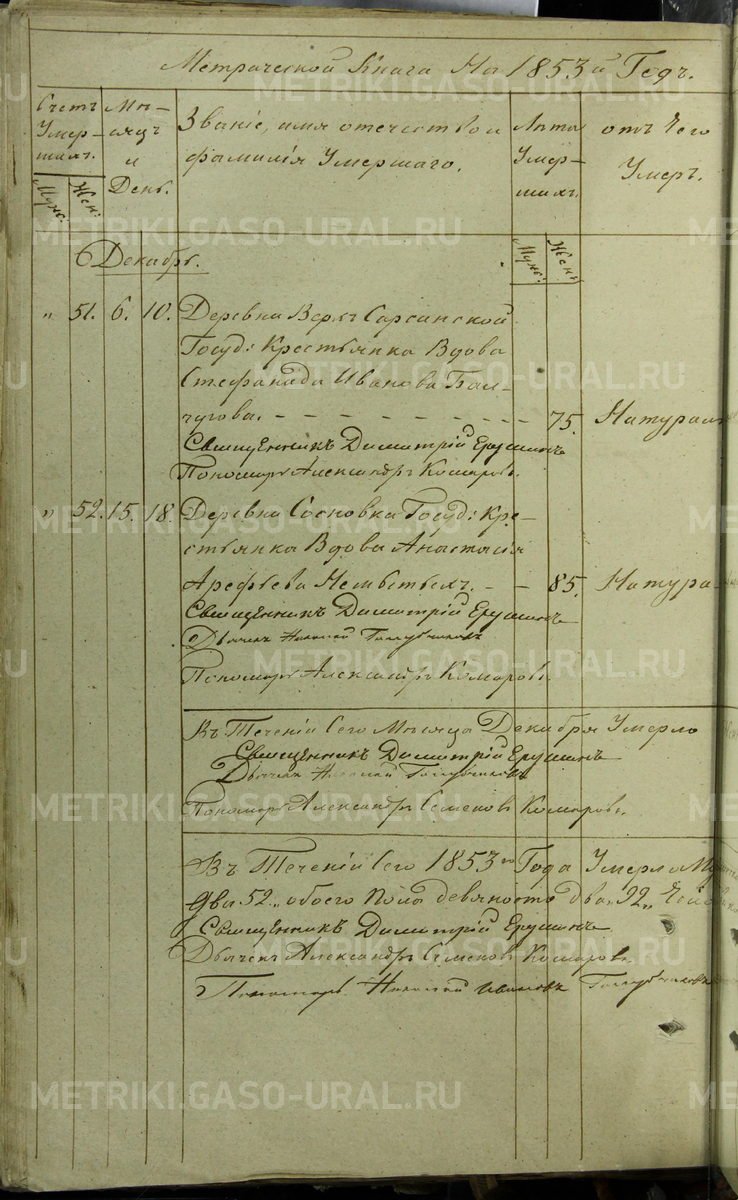 Метрической Книга На 1853й Годъ.
Счетъ Умер-шихъ.
Муж: Жен:
Мѣ-сяцъ и День.
Званіе, имя отечество и
фамилія Умершаго.
Лѣта Умер-шихъ.
Муж: Женс:
отъ Чего
Умеръ.
Декабрь.
„ 51. 6. 10. Деревни Верхъ Сарсинской
Госуд: Крестьянка Вдова
Стефанида Иванова Бал-
чугова. - - - - - - - - 75. Натураль
Священникъ Димитрій Ерушинъ
Пономарь Александръ Комаровъ.
„ 52. 15. 18. Деревни Сосновка Госуд: Кре-
стьянка Вдова Анастасія
Арефьева - - 85. Натура-
Священникъ Димитрій Ерушинъ
Дьячекъ Николай Голубчиковъ
Пономарь Александръ Комаровъ
Въ Теченіи Сего Мѣсяца Декабря Умерло
Священникъ Димитрій Ерушинъ
Дьячекъ Николай Голубчиковъ
Пономарь Александръ Семеновъ Комаровъ.
Въ Теченіи Сего 1853го Года Умерло Му
два 52„ обоего Пола девяносто два „92„
Священникъ Димитрій Ерушинъ
Дьячекъ Александръ Семеновъ Комаровъ
Пономарь Николай Ивановъ Голубчиковъ
METRIKI.GASO-URAL.RU